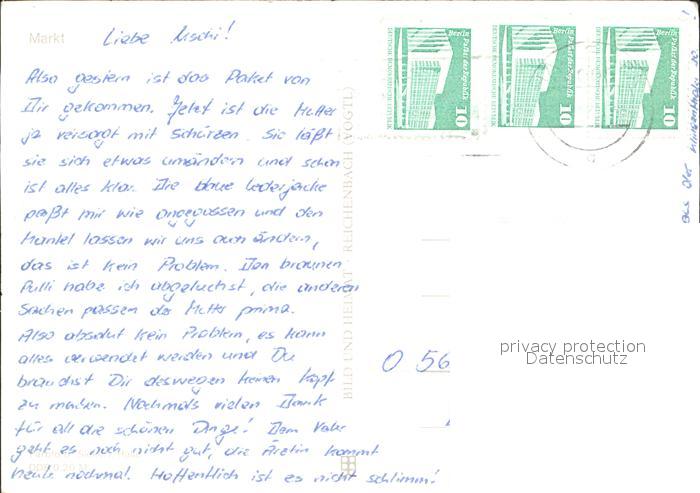 Markt
Liebe Uschi!
Also gestern ist das Paket von
Dir gekommen. Jetzt ist die Mutter
ja versorgt mit Schürzen. Sie läßt
sie sich etwas umändern und schon
ist alles klar. Die blaue Lederjacke
paßt mir wie angegossen und den
Mantel lassen wir uns auch ändern,
das ist kein Problem. Den braunen
Pulli habe ich abgeluchst, die anderen
Sachen passen der Mutter prima.
Also absolut kein Problem, es kann
alles verwendet werden und Du
brauchst Dir deswegen keinen Kopf
zu machen. Nochmals vielen Dank
für all die schönen Dinge! Dem Vater
geht es noch nicht gut, die Ärztin kommt
heute nochmal. Hoffentlich ist es nicht schlimm!
BILD UND HEIMAT REICHENBACH (VOGTL)
Berlin, Palast der Republik
DEUTSCHE DEMOKRATISCHE REPUBLIK
10
Berlin, Palast der Republik
DEUTSCHE DEMOKRATISCHE REPUBLIK
10
Berlin, Palast der Republik
DEUTSCHE DEMOKRATISCHE REPUBLIK
10
aus der
O 56
privacy protection
Datenschutz